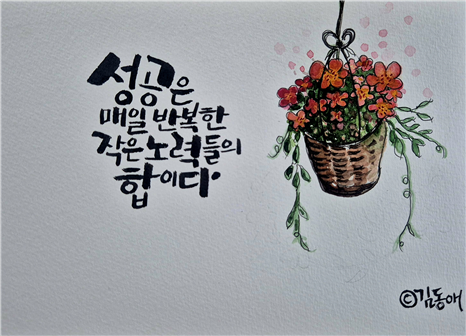 성공은
매일 반복한
작은 노력들의
합이다.
©김동애